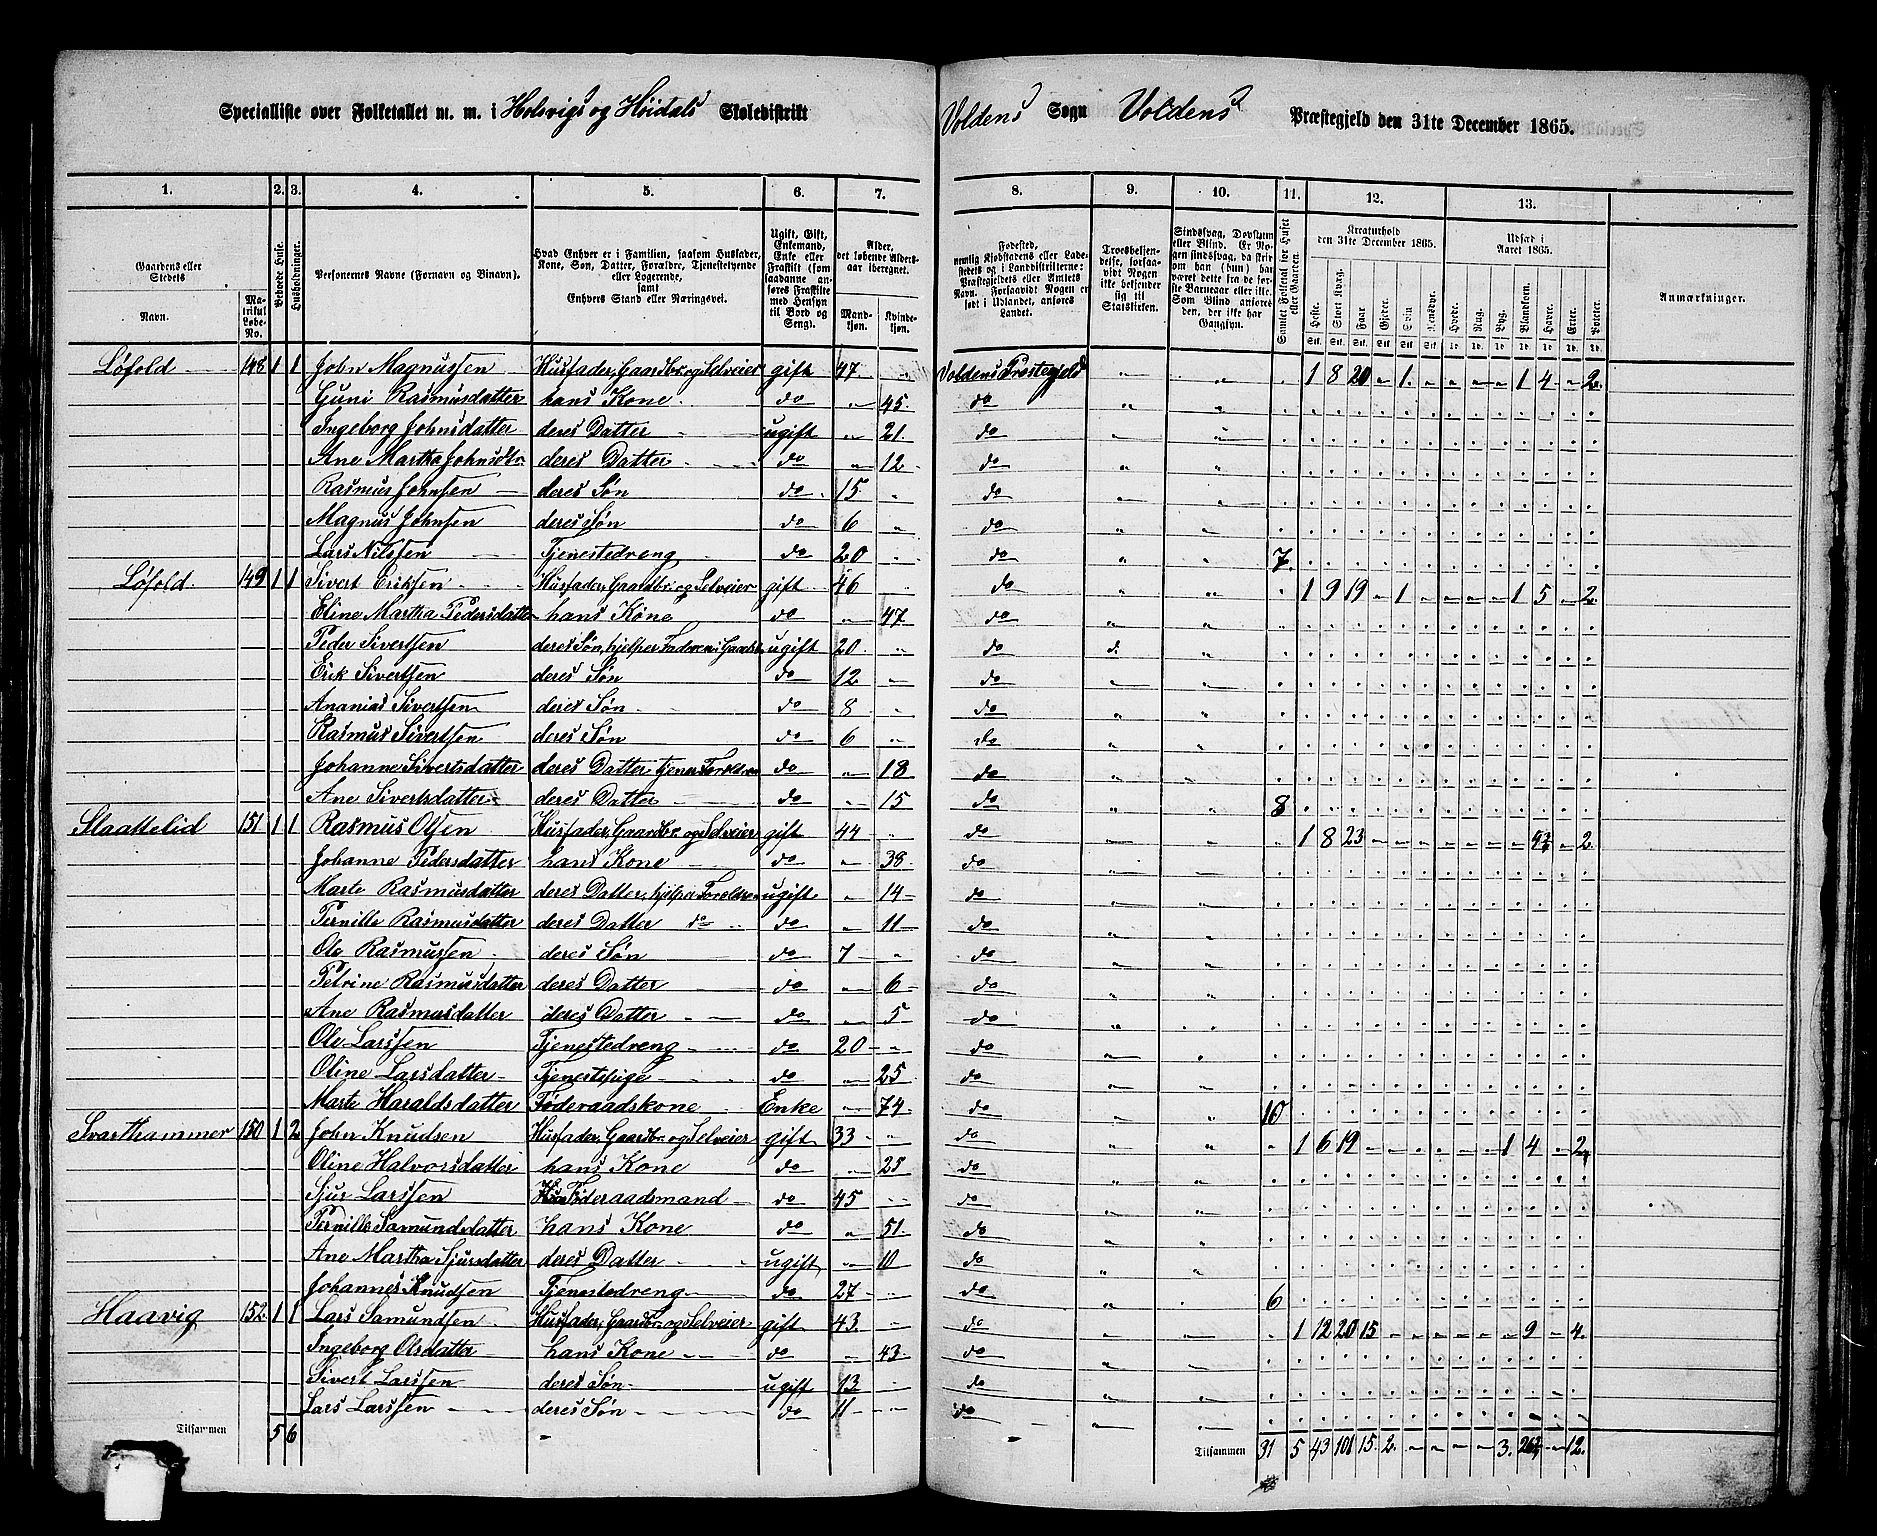 Specialliste over Folketallet m. m. i Holsvigs og Höidals Skoledistrikt Voldens Sogn Voldens Præstegjeld den 31te December 1865.
1. 2. 3. 4. 5. 6. 7. 8. 9. 10. 11. 12. 13.
Gaardens eller Stedets Navn. Matrikul Løbe-No. Beboede Huse. Husholdninger. Personernes Navne (Fornavn og Binavn). Hvad Enhver er i Familien, saasom Husfader, Kone, Søn, Datter, Forældre, Tjenestetyende eller Logerende, samt Enhvers Stand eller Næringsvei. Ugift, Gift, Enkemand, Enke eller Fraskilt (som saadanne anføres Fraskilte med Hensyn til Bord og Seng). Alder, det løbende Aldersaar iberegnet. Mandkjøn. Kvindekjøn.
Fødested, nemlig Kjøbstadens eller Ladestedets og i Landdistrikterne: Præstegjeldets eller Amtets Navn. Forsaavidt Nogen er født i Udlandet, anføres Landet. Troesbekjendelse, forsaavidt Nogen ikke bekjender sig til Statskirken. Sindssvag, Døvstum eller Blind. Er Nogen sindssvag, da skrives om han (hun) har været dette fra de første Barneaar eller ikke. Som Blind anføres den, der ikke har Gangsyn. Samlet Folketal for Huset eller Gaarden. Kreaturhold den 31te December 1865. Udsæd i Aaret 1865. Anmærkninger.
Heste. Stort Kvæg. Faar Gjeder. Svin Rensdyr. Hvede. Rug. Byg. Blandkorn. Havre. Erter. Poteter.
Løfold 148 1 1 John Magnussen Husfader, Gaardbr. og Selveier gift 47 Voldens Prestegjeld 1 8 20 - 1 - - - - 1 4 - 2
Guni Rasmusdatter hans Kone do 45 do
Ingeborg Johnsdatter deres Datter ugift 21 do
Ane Martha Johnsdtr deres Datter do 12 do
Rasmus Johnsen deres Søn do 15 do
Magnus Johnsen deres Søn do 6 do
Lars Nilssen Tjenestedreng do 20 do 7
Løfold 149 1 1 Sivert Eriksen Husfader, Gaardbr. og Selveier gift 46 do 1 9 19 - 1 - - - - 1 5 - 2
Eline Martha Pedersdatter hans Kone do 47 do
Peder Sivertsen deres Søn, hjelper Faderen i Gaarden ugift 20 do
Erik Sivertsen deres Søn do 12 do
Ananias Sivertsen deres Søn do 8 do
Rasmus Sivertsen deres Søn do 6 do
Johanne Sivertsdatter deres Datter tjener Foreldrene do 18 do
Ane Sivertsdatter deres Datter do 15 do 8
Slaattelid 151 1 1 Rasmus Olsen Husfader, Gaardbr. og Selveier gift 44 do 1 8 23 - - - - - - - 9½ - 2
Johanne Pedersdatter hans Kone do 38 do
Marte Rasmusdatter deres Datter, hjelper Foreldrene ugift 14 do
Pernille Rasmusdatter deres Datter do do 11 do
Ole Rasmussen deres Søn do 7 do
Petrine Rasmusdatter deres Datter do 6 do
Ane Rasmusdatter deres Datter do 5 do
Ole Larssen Tjenestedreng do 20 do
Oline Larsdatter Tjenestepige do 25 do
Marte Haraldsdatter Føderaadskone Enke 74 do 10
Svarthammer 150 1 2 John Knudsen Husfader, Gaardbr. og Selveier gift 33 do 1 6 19 - - - - - - 1 4 - 2
Oline Halvorsdatter hans Kone do 25 do
Sjur Larssen Føderaadsmand do 45 do
Pernille Samundsdatter hans Kone do 51 do
Ane Martha Sjursdatter deres Datter ugift 10 do
Johannes Knudsen Tjenestedreng do 27 do 6
Haavig 152 1 1 Lars Samundsen Husfader, Gaardbr. og Selveier gift 43 do 1 12 20 15 - - - - - - 9 - 4
Ingeborg Olsdatter hans Kone do 43 do
Sivert Larssen deres Søn ugift 13 do
Lars Larssen deres Søn do 11 do
Tilsammen 5 6 Tilsammen 31 5 43 101 15 2 - - - - 3 26½ - 12